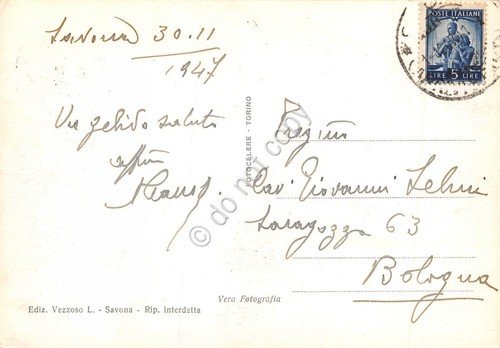 Savona 30.11
1947
Un gelido saluto
POSTE ITALIANE
LIRE 5 LIRE
FOTOCELERE - TORINO
Cav Giovanni
Saragozza 63
Bologna
Vera Fotografia
Ediz. Vezzoso L. - Savona - Rip. Interdetta
© do not copy